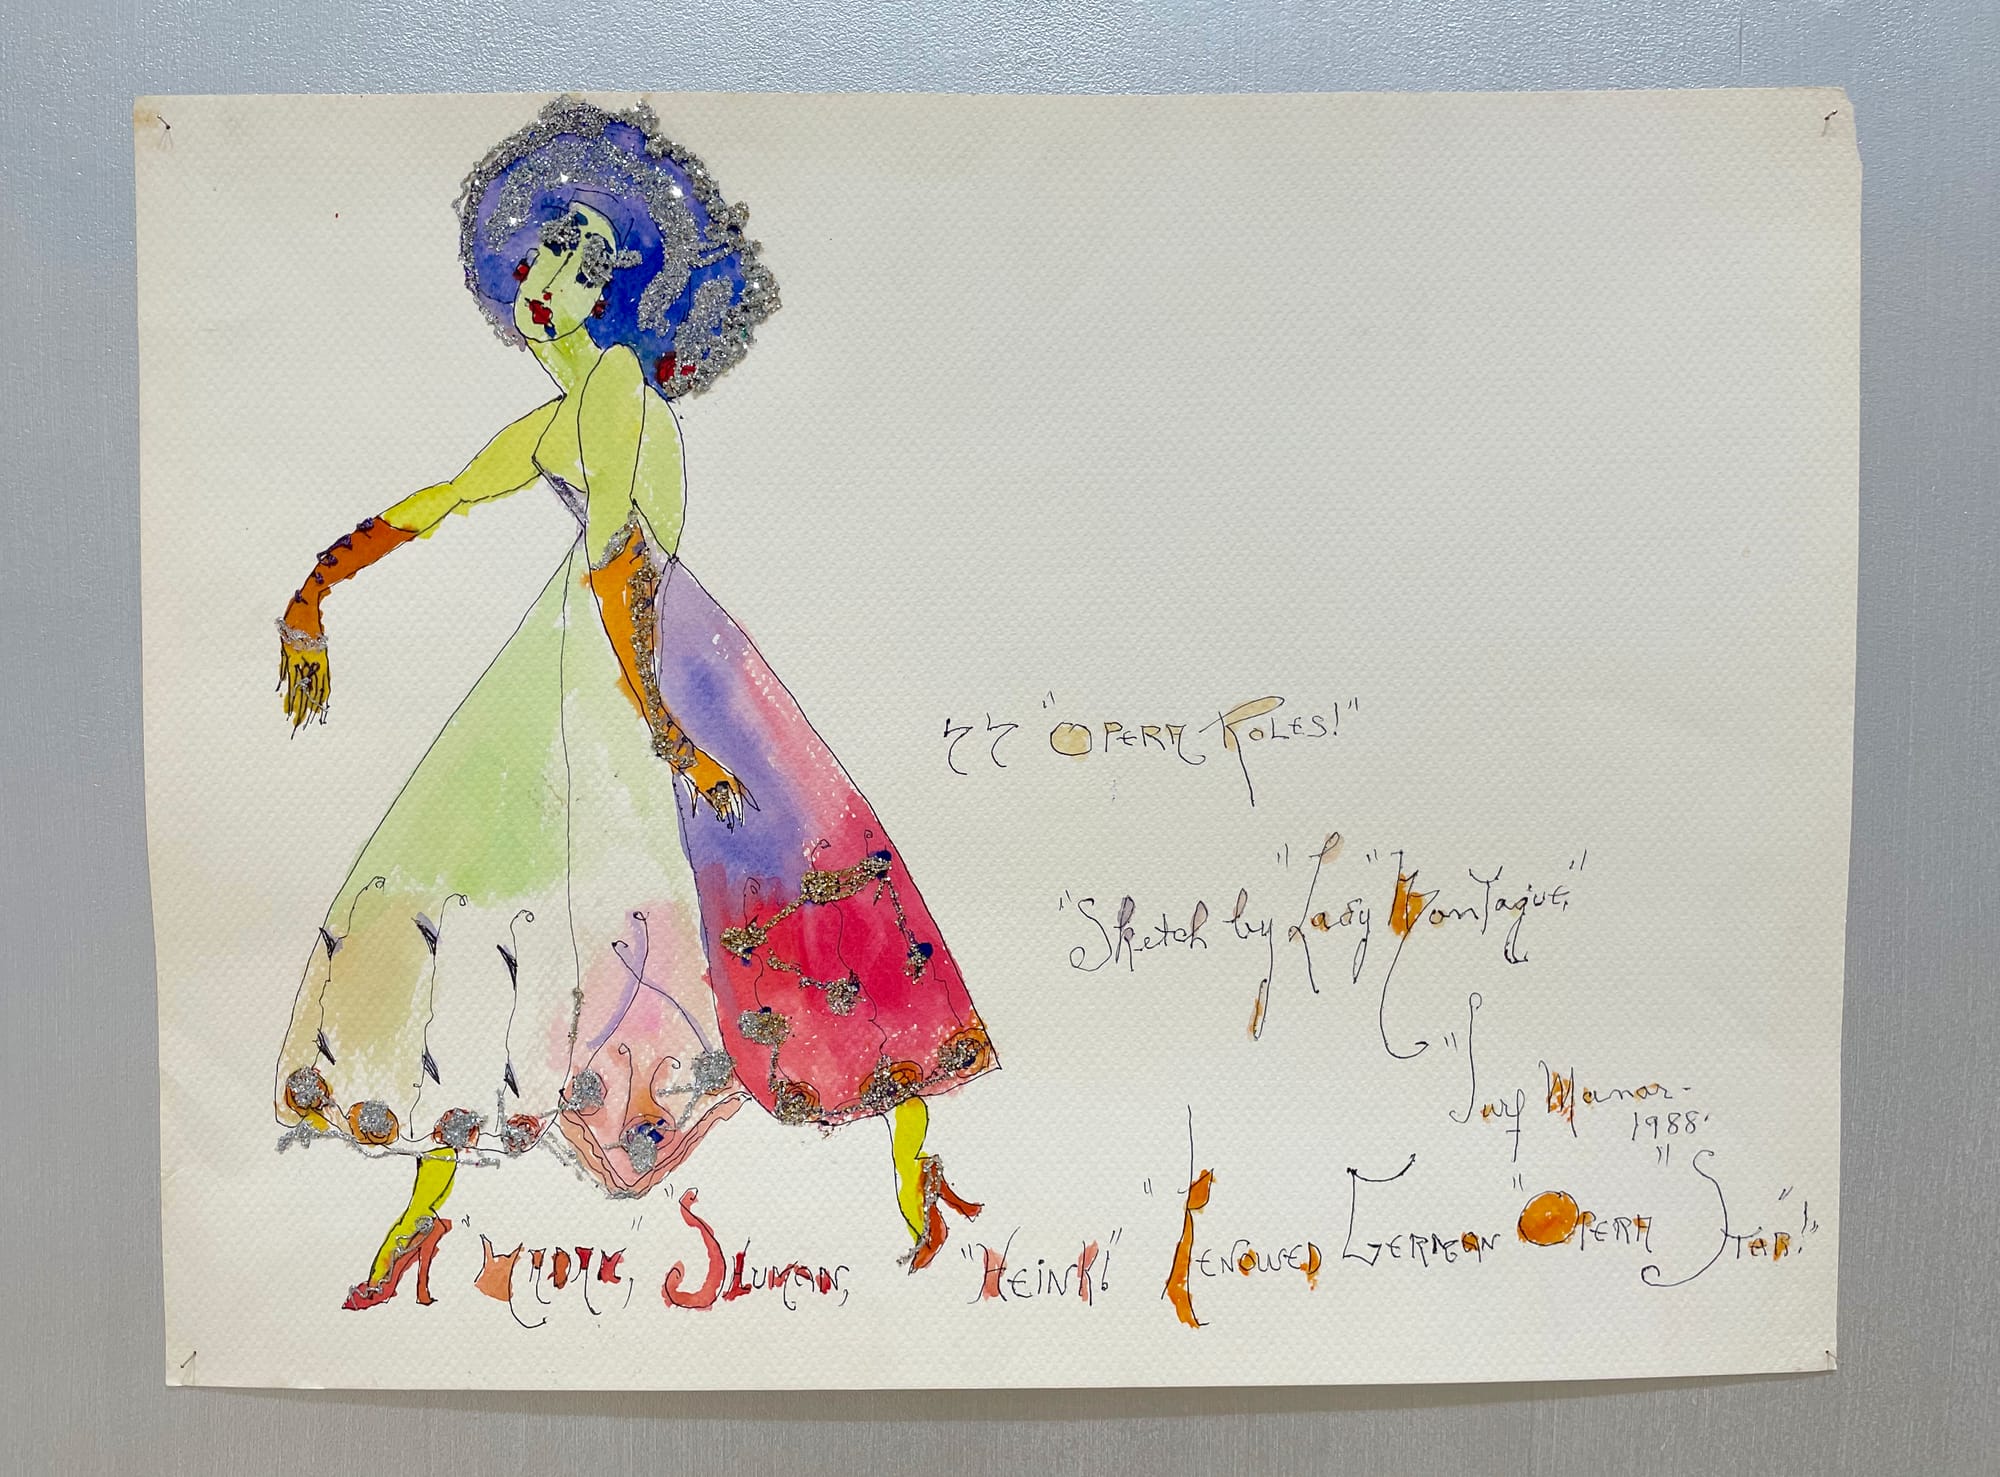 77 "Opera Roles!"
"Sketch by "Lady" Montague,"
"Surf Manor-
1988.
"Madam," "Shuman, "Heink!" "Renowed German "Opera" Star!"